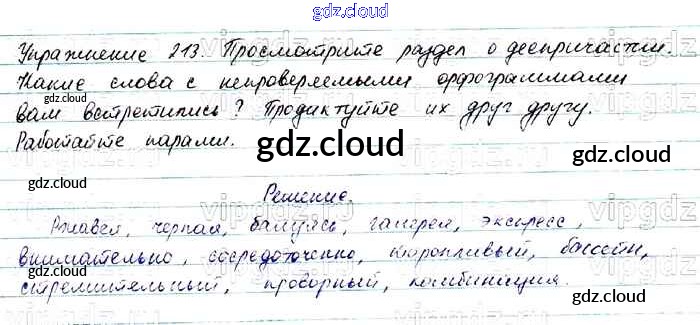 gdz.cloud
Упражнение 213. Просмотрите раздел о деепричастии.
Какие слова с непроверяемыми орфограммами
вам встретились? Продиктуйте их друг другу.
Работайте парами.
gdz.cloud
gdz.cloud
gdz.cloud
gdz.cloud
Решение.
черпая, балуясь, галерея, экспресс,
внимательно, сосредоточенно, бассейн,
стремительный, проворный, комбинация.
gdz.cloud
gdz.cloud
gdz.cloud
gdz.cloud